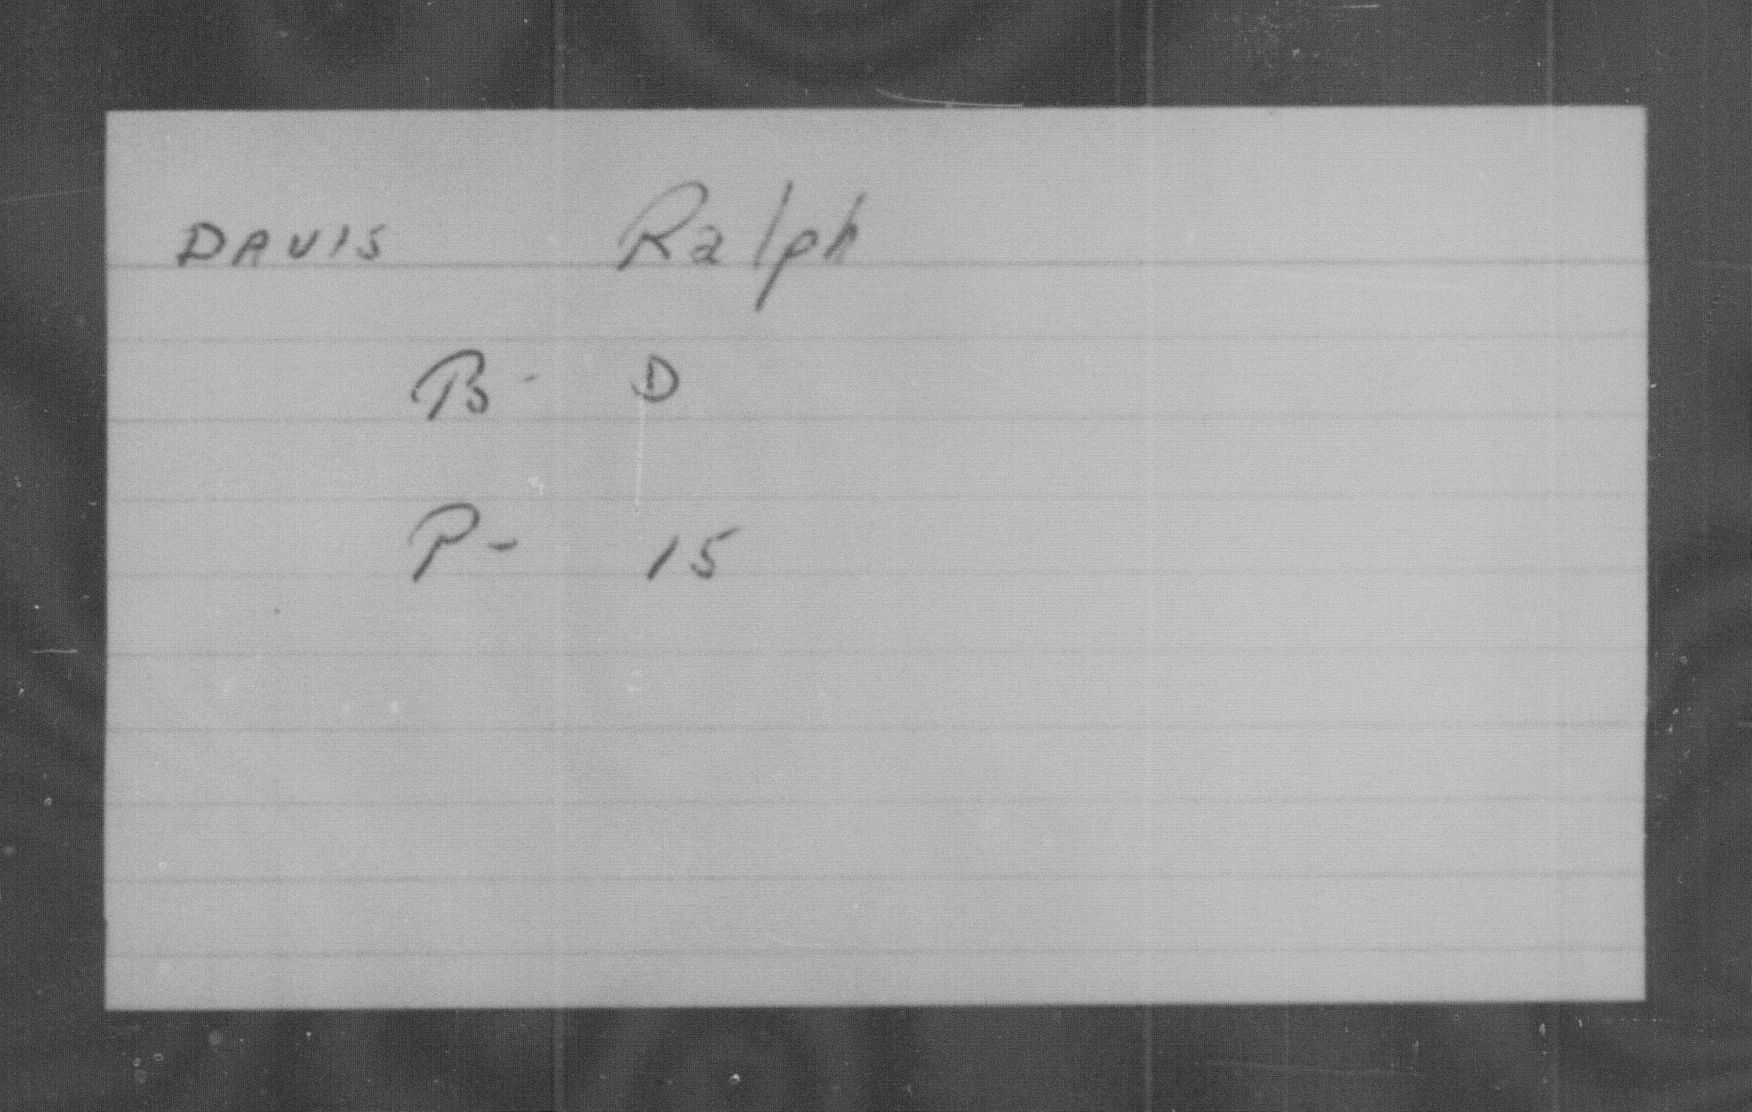 DAVIS Ralph
B - D
P - 15